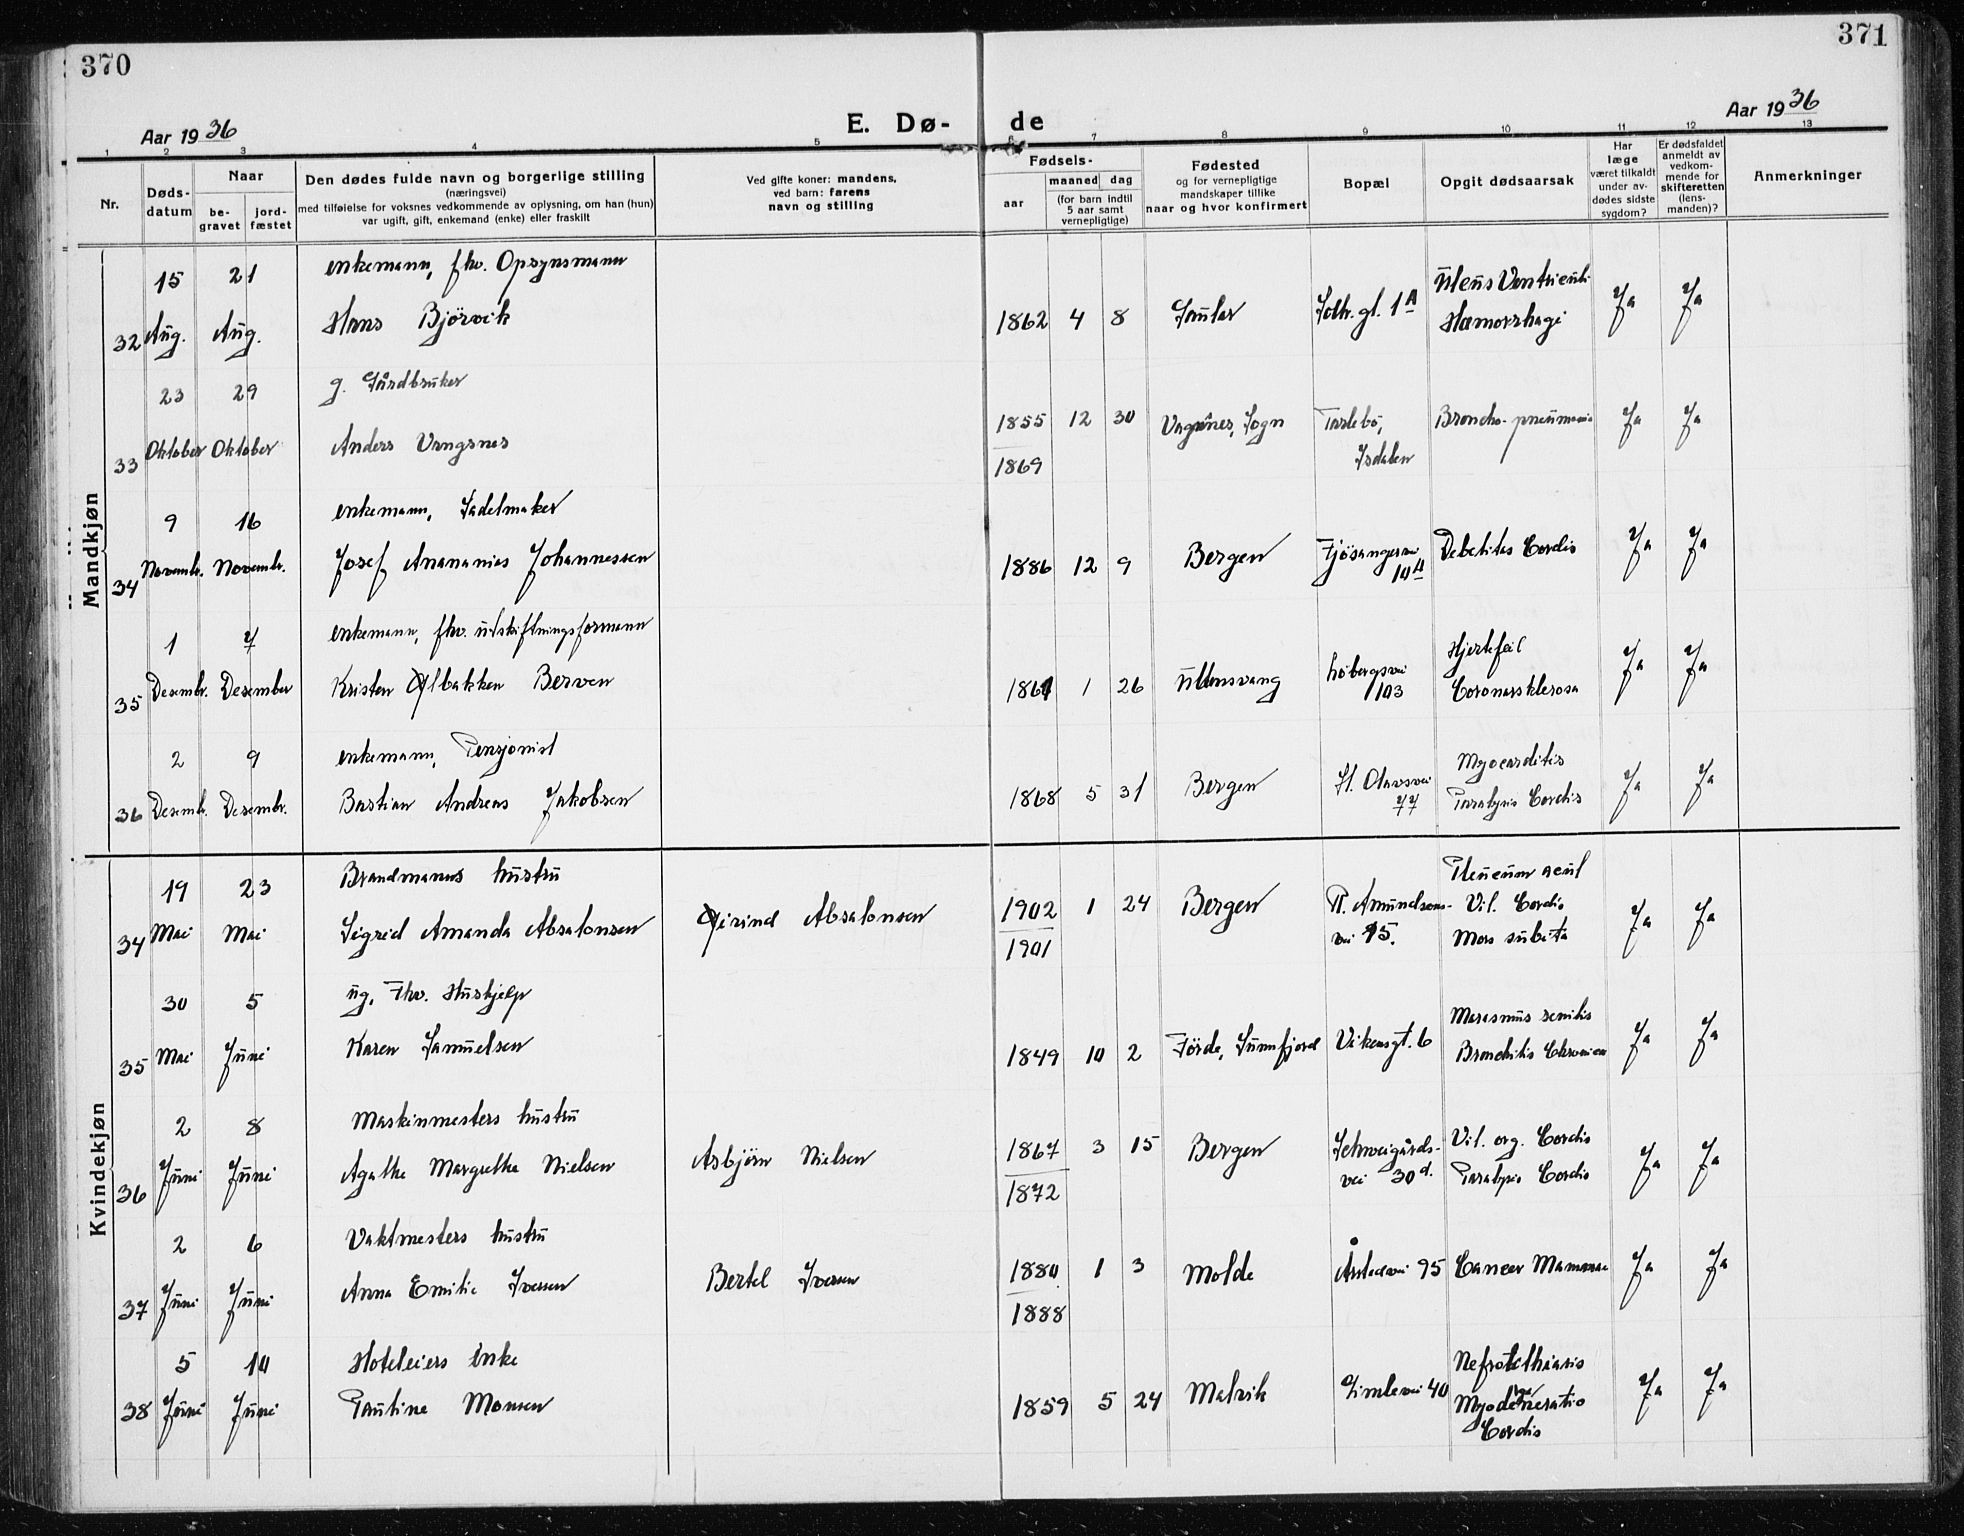 370
371
Aar 1936
E. Dø-
de
Aar 1936
1 2 3 4 5 6 7 8 9 10 11 12 13
Nr.
Døds-
datum
Naar
be-
gravet
jord-
fæstet
Den dødes fulde navn og borgerlige stilling
(næringsvei)
med tilføielse for voksnes vedkommende av oplysning, om han (hun)
var ugift, gift, enkemand (enke) eller fraskilt
Ved gifte koner: mandens,
ved barn: farens
navn og stilling
Fødsels-
aar
maaned
dag
(for barn indtil
5 aar samt
vernepligtige)
Fødested
og for vernepligtige
mandskaper tillike
naar og hvor konfirmert
Bopæl
Opgit dødsaarsak
Har
læge
været tilkaldt
under av-
dødes sidste
sygdom?
Er dødsfaldet
anmeldt av
vedkom-
mende for
skifteretten
(lens-
manden)?
Anmerkninger
Mandkjøn
15 21 enkemann, fhv. Opsynsmann
32 Aug. Aug. Hans Björvik 1862 4 8 Gaular 1A
Hæmorrhagi Ja Ja
23 29 g. Gårdbruker
33 Oktober Oktober Anders Vangsnes
1855 12 30 Sogn Tarlebö, Broncho-pneumonie Ja Ja
1869 Isdalen
9 16 enkemann, Sadelmaker
34 Novembr. Novembr. Josef Anananias Johannessen
1886 12 9 Bergen Fjösangervei Debelitas Cordis Ja Ja
10A
1 7 enkemann, fhv. utskiftningsformann
35 Desembr. Desember Kristen Olbakken Berven
1861 1 26 Ullensvang Löbergsvei Hjertefeil Ja Ja
103 Coronarsklerosa
2 9 enkemann, Pensjonist
36 Desemb. Desembr. Bastian Andreas Jakobsen
1868 5 31 Bergen St. Olavsvei Myocarditis Ja Ja
77 Paralysis Cordis
Kvindekjøn
19 23 Brandmanns hustru
34 Mai Mai Sigrid Amanda Absalonsen Öivind Absalonsen
1902 1 24 Bergen R. Amundsens- Vil. Cordis Ja Ja
1901 vei 95. Mors subita
30 5 ug. Fhv. Hushjelp
35 Mai Juni Karen Samuelsen
1849 10 2 Förde, Sunnfjord Vikensgt. 6 Marasmus senilis Ja Ja
Bronchitis Chronica
2 8 Maskinmesters hustru
36 Juni Juni Agathe Margrethe Nielsen Asbjörn Nielsen
1867 3 15 Bergen Schweigårds- Vil. org. Cordis Ja Ja
1872 vei 30d. Paralysis Cordis
2 6 Vaktmesters hustru
37 Juni Juni Anna Emilie Iversen Bertel Iversen
1880 1 3 Molde Årstadvei 95 Cancer Mammae Ja Ja
1888
5 10 Hoteleiers enke
38 Juni Juni Pauline Monsen
1859 5 24 Malvik Gimlevei 40 Nefrolithiasis Ja Ja
Myodegeneratio
Cordis